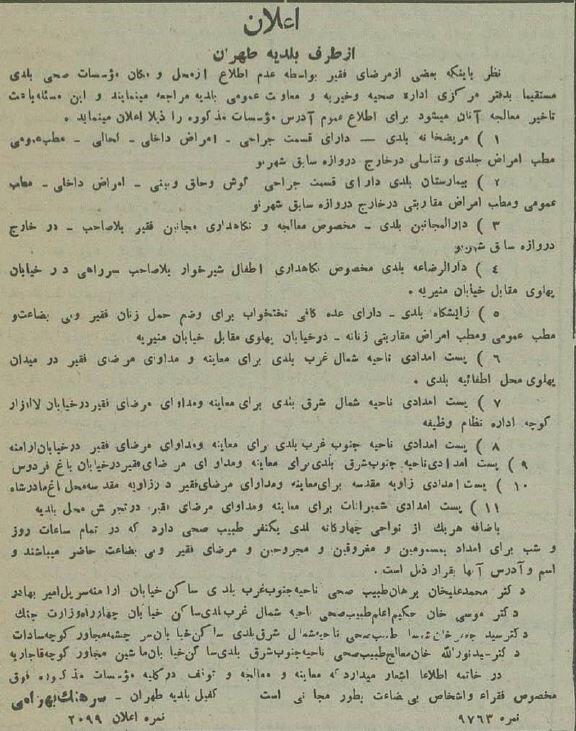 اعلان
از طرف بلدیه طهران
نظر باینکه بعضی از مرضای فقیر بواسطه عدم اطلاع از محل و مکان مؤسسات صحی بلدی
مستقیما بدفتر مرکزی اداره صحیه و خیریه و معاونت عمومی بلدیه مراجعه مینمایند و این مسئله باعث
تاخیر معالجه آنان میشود برای اطلاع عموم آدرس مؤسسات مذکوره را ذیلا اعلان مینماید .
۱ ) مریضخانه بلدی — دارای قسمت جراحی - امراض داخلی - اطفالی - مطب عمومی
مطب امراض جلدی و تناسلی در خارج دروازه سابق شهرنو
۲ ) بیمارستان بلدی دارای قسمت جراحی گوش و حلق و بینی - امراض داخلی - مطب
عمومی و مطب امراض مقاربتی در خارج دروازه سابق شهرنو
۳ ) دارالمجانین بلدی - مخصوص معالجه و نگاهداری مجانین فقیر بلاصاحب - در خارج
دروازه سابق شهرنو
٤ ) دارالرضاعه بلدی مخصوص نگاهداری اطفال شیرخوار بلاصاحب سرراهی در خیابان
پهلوی مقابل خیابان منیریه .
٥ ) زایشگاه بلدی - دارای عده کافی تختخواب برای وضع حمل زنان فقیر و بی بضاعت و
مطب عمومی و مطب امراض مقاربتی زنانه - در خیابان پهلوی مقابل خیابان منیریه
٦ ) پست امدادی ناحیه شمال غرب بلدی برای معاینه و مداوای مرضای فقیر در میدان
پهلوی محل اطفائیه بلدی .
۷ ) پست امدادی ناحیه شمال شرق بلدی برای معاینه ومداوای مرضای فقیر در خیابان لاله‌زار
کوچه اداره نظام وظیفه
۸ ) پست امدادی ناحیه جنوب غرب بلدی برای معاینه ومداوای مرضای فقیر در خیابان ارامنه
۹ ) پست امدادی ناحیه جنوب شرق بلدی برای معاینه ومداوای مرضای فقیر در خیابان باغ فردوس
۱۰ ) پست امدادی زاویه مقدسه برای معاینه ومداوای مرضای فقیر در زاویه مقدسه محل باغ مادرشاه
۱۱ ) پست امدادی شمیرانات برای معاینه ومداوای مرضای فقیر در تجریش محل بلدیه
باضافه هریك از نواحی چهارگانه بلدی یکنفر طبیب صحی دارد که در تمام ساعات روز
و شب برای امداد بمسمومین و مغروقین و مجروحین و مرضای فقیر و بی بضاعت حاضر میباشند و
اسم و آدرس آنها بقرار ذیل است .
دکتر محمدعلیخان برهان طبیب صحی ناحیه جنوب غرب بلدی ساکن خیابان ارامنه سرپل امیر بهادر
دکتر موسی خان حکیم اعلم طبیب صحی ناحیه شمال غرب بلدی ساکن خیابان چهارراه وزارت جنك
دکتر سید طبیب صحی ناحیه شمال شرق بلدی ساکن خیابان سرچشمه مجاور کوچه سادات
دکتر سید نورالله خان معالج طبیب صحی ناحیه جنوب شرق بلدی ساکن خیابان ماشین مجاور کوچه قاجاریه
در خاتمه اطلاعا اشعار میدارد که معاینه و معالجه و توقف در کلیه مؤسسات مذکوره فوق
مخصوص فقراء و اشخاص بی بضاعت بطور مجانی است کفیل بلدیه طهران - سرهنك بهرامی
نمره ۹۷٦۳ نمره اعلان ۲۰۹۹